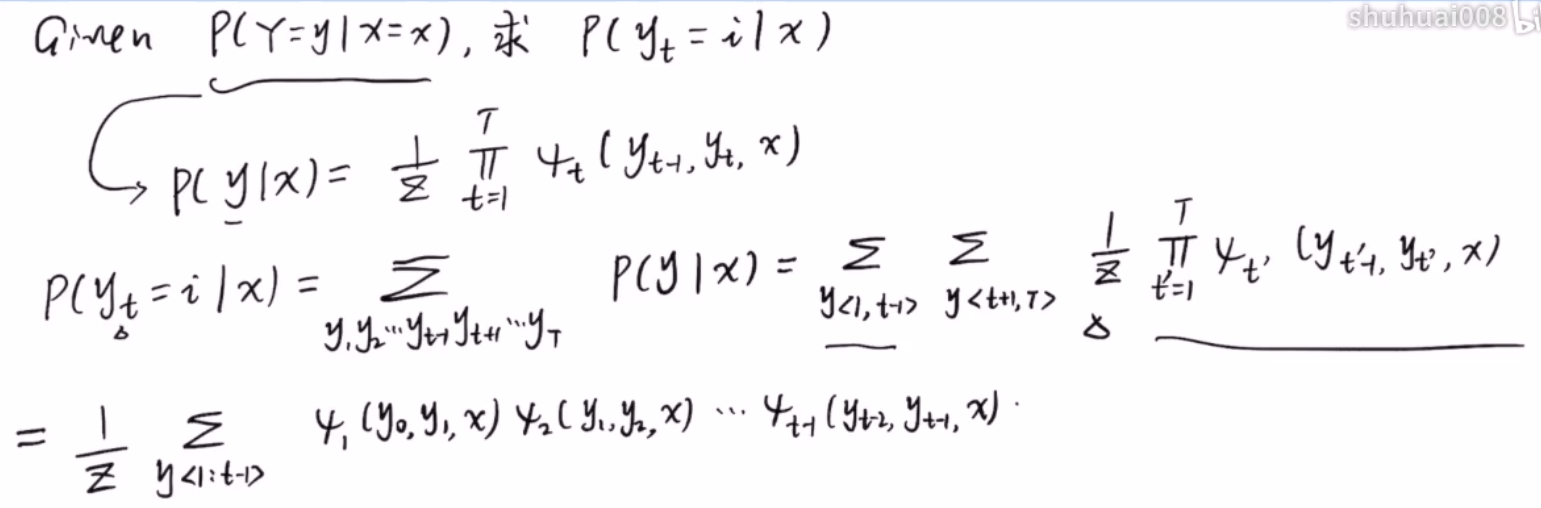 shuhuai008 bi
Given P(Y=y|X=x), 求 P(y_t = i | x)
P(y|x) = 1/Z ∏_{t=1}^{T} ψ_t (y_{t-1}, y_t, x)
P(y_t = i | x) = Σ_{y_1 y_2 ⋯ y_{t-1} y_{t+1} ⋯ y_T} P(y|x) = Σ_{y<1,t-1>} Σ_{y<t+1,T>} 1/Z ∏_{t'=1}^{T} ψ_{t'} (y_{t'-1}, y_{t'}, x)
△ △
= 1/Z Σ_{y<1:t-1>} ψ_1 (y_0, y_1, x) ψ_2 (y_1, y_2, x) ⋯ ψ_{t-1} (y_{t-2}, y_{t-1}, x) ·